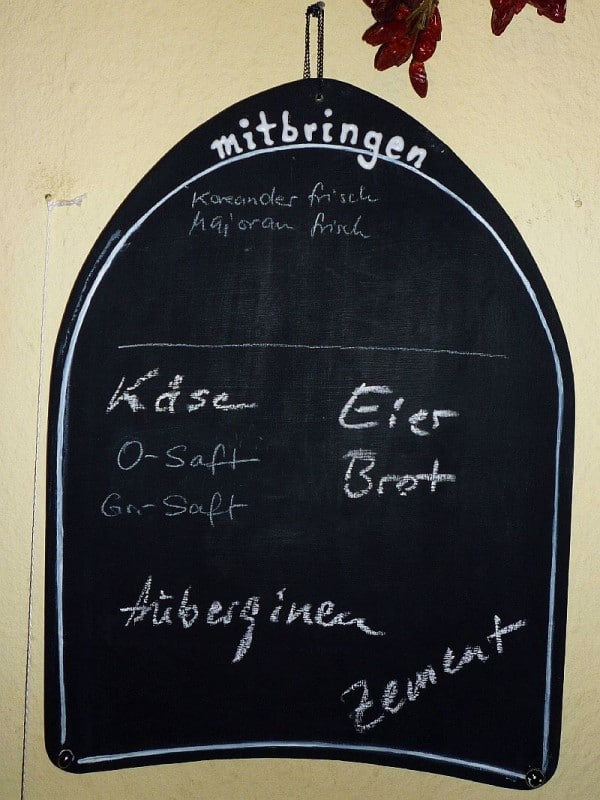 mitbringen
Koreander frisch
Majoran frisch
Käse
Eier
O-Saft
Brot
Gr.-Saft
Auberginen
Zement